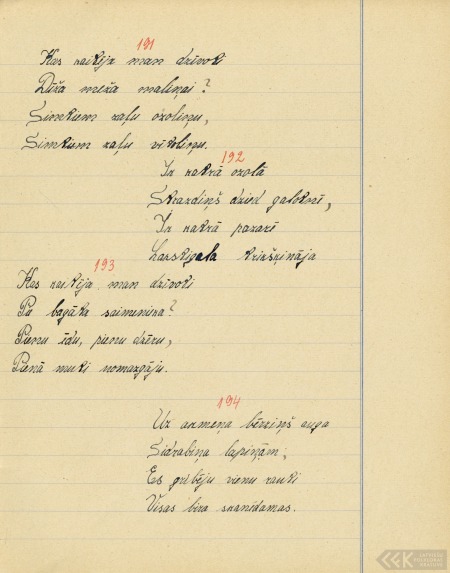 191
Kas kaitēja man dzīvoti
Diža meža maliņai?
Simtiem zaļu ozoliņu,
Simtiem zaļu vītoliņu.
192
Ik katrā ozolā
Strazdiņš dzied galotnē,
Ik katrā pazarē
Lakstīgala
193
Kas kaitēja man dzīvoti
Pie bagāta saimenieka?
Pienu ēdu, pienu dzēru,
Pienā muti nomazgāju.
194
Uz akmeņa bērziņš auga
Sidrabiņa lapiņām,
Es gribēju vienu rauti
Visas bira skanēdamas.